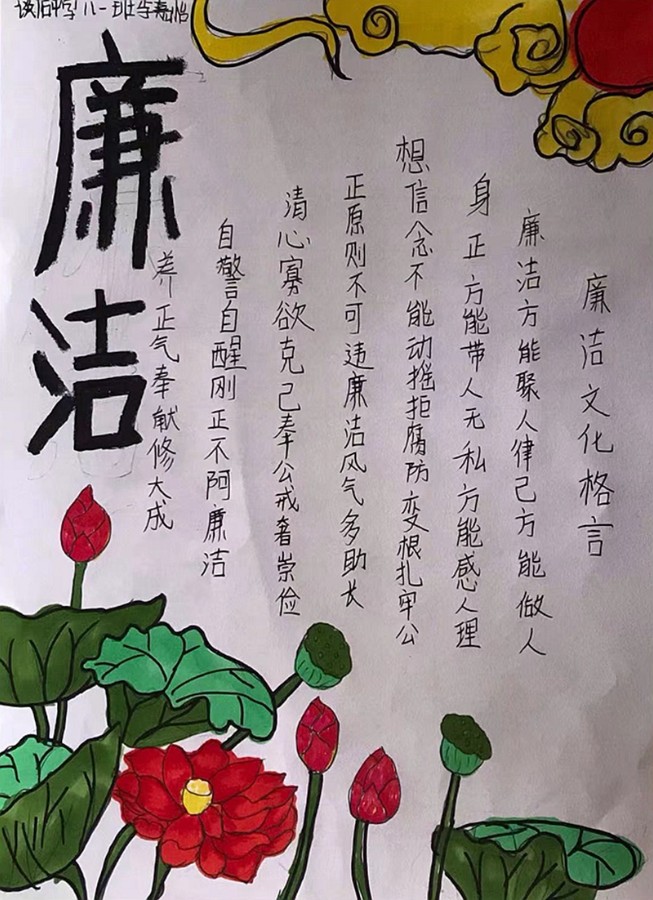 中学八一班李嘉怡
廉洁
廉洁文化格言
廉洁方能聚人律己方能做人
身正方能带人无私方能感人理
想信念不能动摇拒腐防变根扎牢公
正原则不可违廉洁风气多助长
清心寡欲克己奉公戒奢崇俭
自警自醒刚正不阿廉洁
养正气奉献修大成